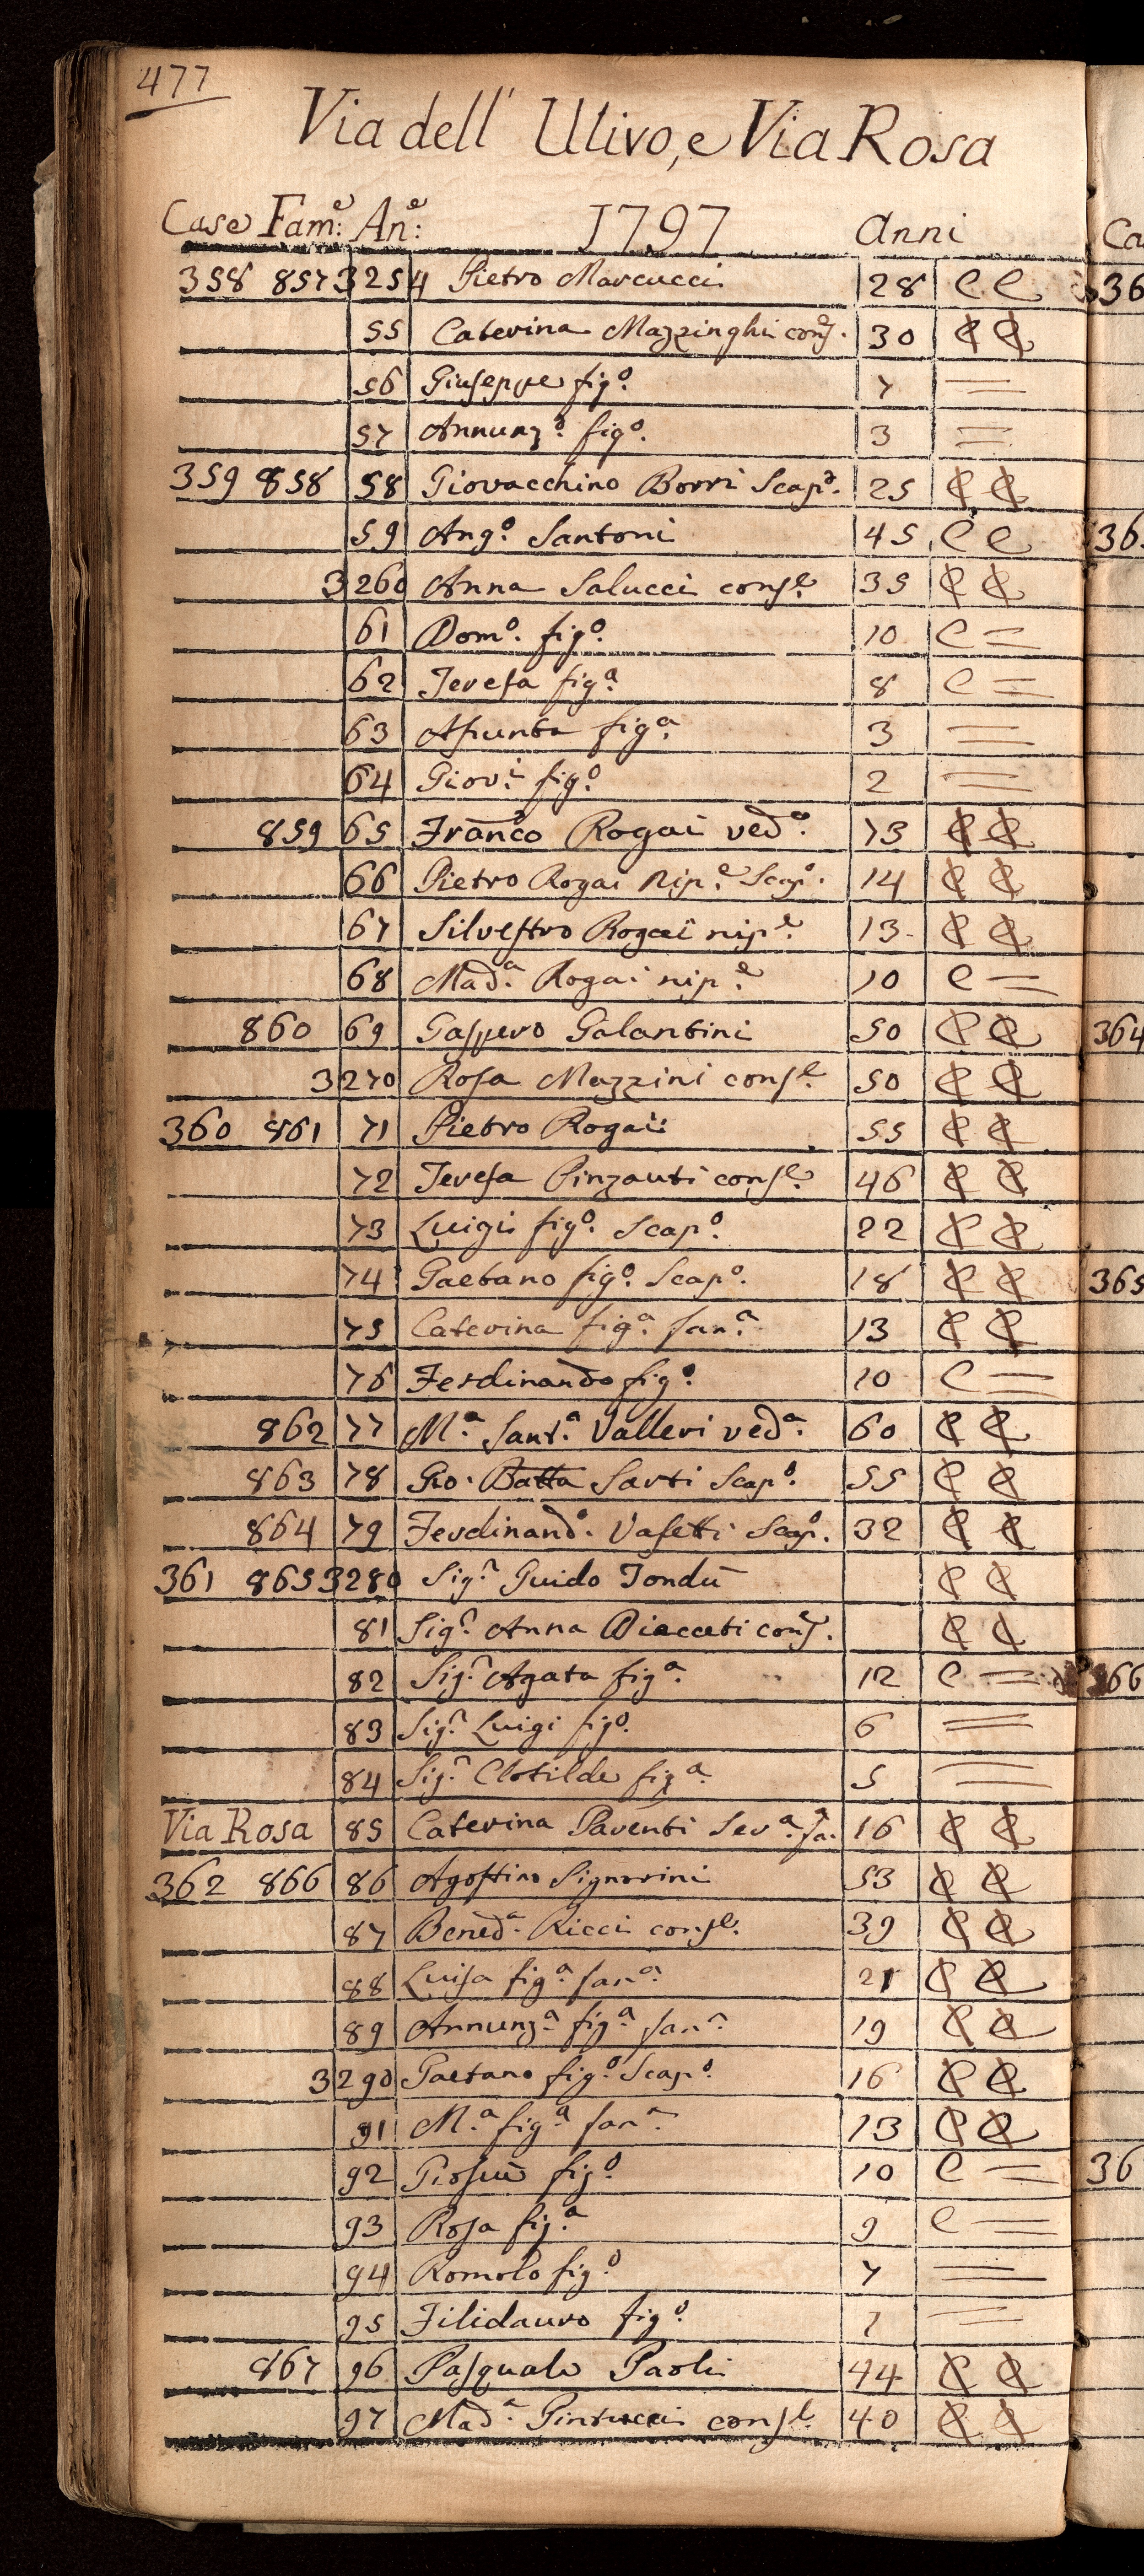 477
Via dell' Ulivo, e Via Rosa
Case Fam:e An:e 1797 Anni
358 857 3254 Pietro Marcucci 28 C C
55 Caterina Mazzinghi cons.e 30 C C
56 Giuseppe fig.o 7 =
57 Annunz.o fig.o 3 =
359 858 58 Giovacchino Borri Scap.o 25 C C
59 Ang.o Santoni 45 C C
3260 Anna Salucci cons.e 35 C C
61 Dom.o fig.o 10 C =
62 Teresa fig.a 8 C =
63 Assunta fig.a 3 =
64 Giov.i fig.o 2 =
859 65 Franco Rogai ved.o 73 C C
66 Pietro Rogai Nip.e Scap.o 14 C C
67 Silvestro Rogai nip.e 13 C C
68 Mad.a Rogai nip.e 10 C =
860 69 Gaspero Galantini 50 C C
3270 Rosa Mazzini cons.e 50 C C
360 861 71 Pietro Rogai 55 C C
72 Teresa Pinzauti cons.e 46 C C
73 Luigi fig.o Scap.o 22 C C
74 Gaetano fig.o Scap.o 18 C C
75 Caterina fig.a fan.a 13 C C
76 Ferdinando fig.o 10 C =
862 77 M.a Sant.a Valleri ved.a 60 C C
863 78 Gio. Batta Sarti Scap.o 55 C C
864 79 Ferdinand.o Vasetti Scap.o 32 C C
361 865 3280 Sig.r Guido C C
81 Sig.r Anna cons.e C C
82 Sig.r Agata fig.a 12 C =
83 Sig.r Luigi fig.o 6 =
84 Sig.r Clotilde fig.a 5 =
Via Rosa 85 Caterina Parenti Ser.a fa. 16 C C
362 866 86 Agostino Signorini 53 C C
87 Bened.a Ricci cons.e 39 C C
88 Luisa fig.a fan.a 21 C C
89 Annunz.a fig.a fan.a 19 C C
3290 Gaetano fig.o Scap.o 16 C C
91 M.a fig.a fan.a 13 C C
92 Giosuè fig.o 10 C =
93 Rosa fig.a 9 C =
94 Romolo fig.o 7 =
95 Filidauro fig.o =
867 96 Pasquale Paoli 44 C C
97 Mad.a cons.e 40 C C
Ca
36
36
364
365
366
36